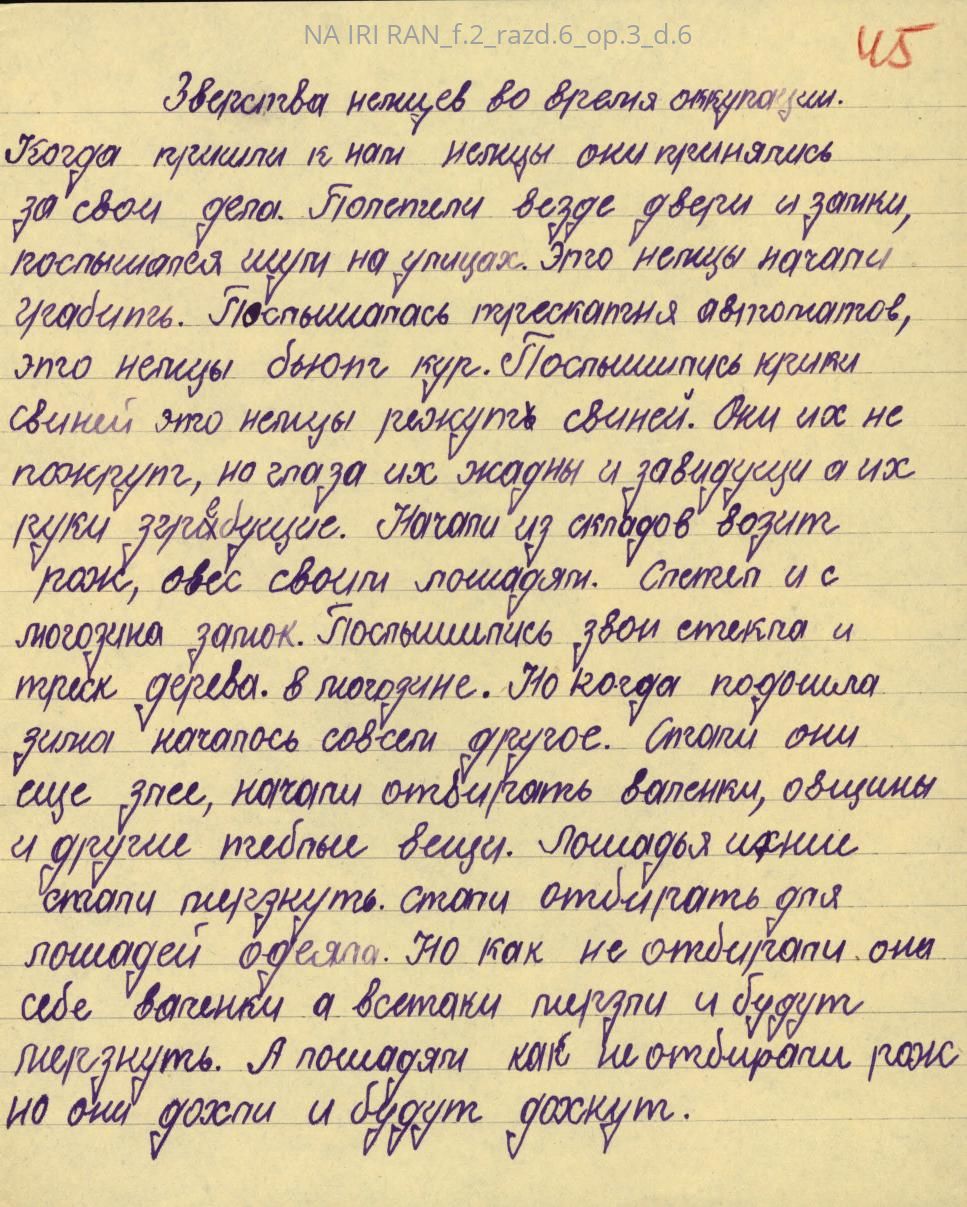 NA IRI RAN_f.2_razd.6_op.3_d.6
45
Зверства немцев во время оккупации.
Когда пришли к нам немцы они принялись
за свои дела. Полетели везде двери и замки,
послышался шум на улицах. Это немцы начали
грабить. Послышалась трескатня автоматов,
это немцы бьют кур. Послышились крики
свиней это немцы режуть свиней. Они их не
пожрут, но глаза их жадны и завидущи а их
руки згребущие. Начали из складов возит
рож, овес своим лошадям. Слетел и с
могозина замок. Послышились звон стекла и
треск дерева. в могозине. Но когда подошла
зима началось совсем другое. Стали они
еще злее, начали отбирать валенки, овщины
и другие теблые вещи. Лошадья ихние
стали мерзнуть. стали отбирать для
лошадей одеяла. Но как не отбирали они
себе валенки а всетаки мерзли и будут
мерзнуть. А лошадям как не отбирали рож
но они дохли и будут дохнут.